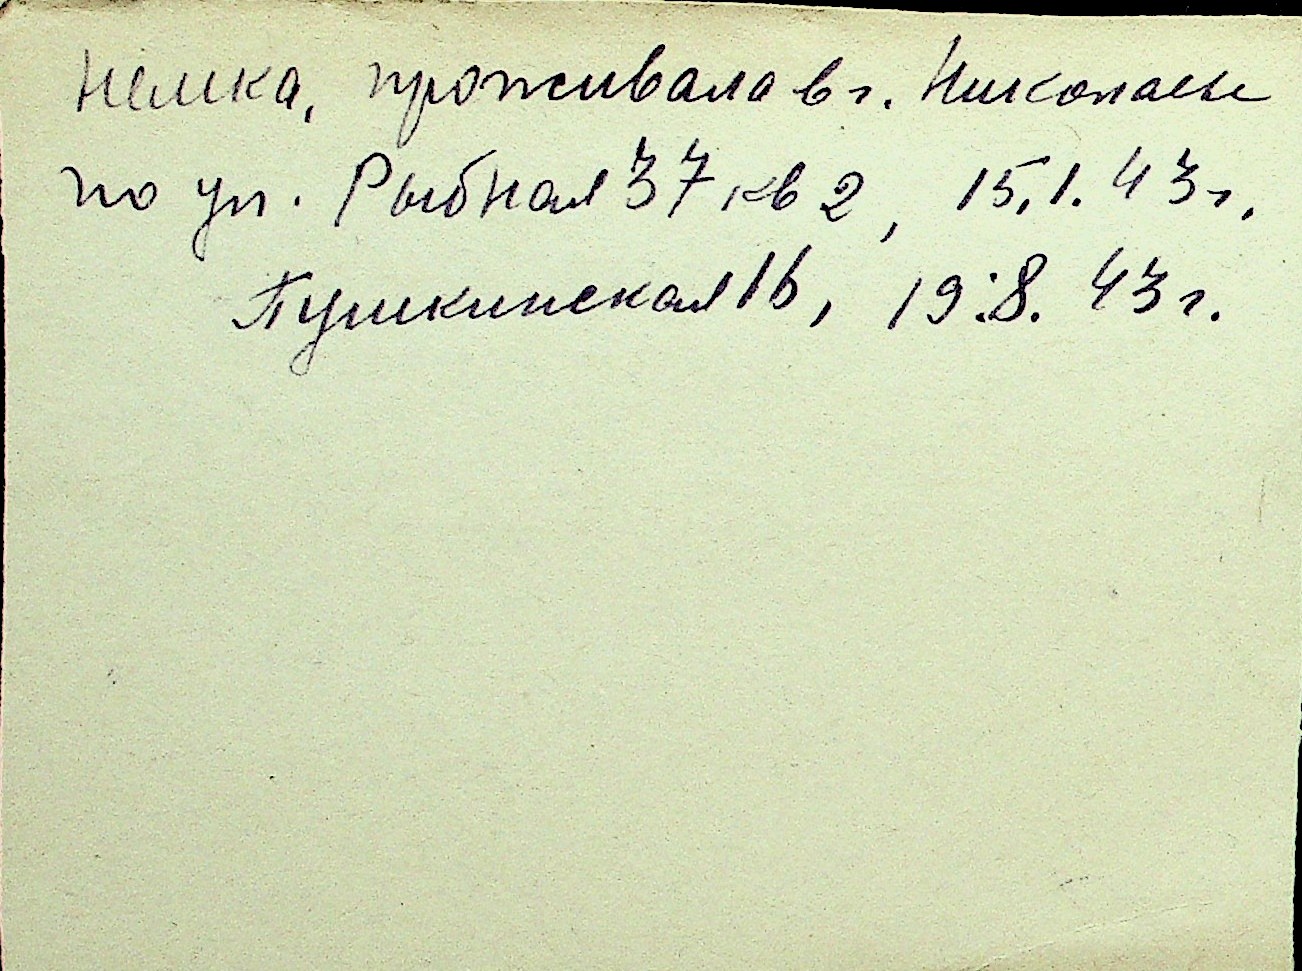 немка, проживала в г. Николаеве
по ул. Рыбная 37 кв 2, 15.1.43г.
Пушкинская 16, 19.8.43г.